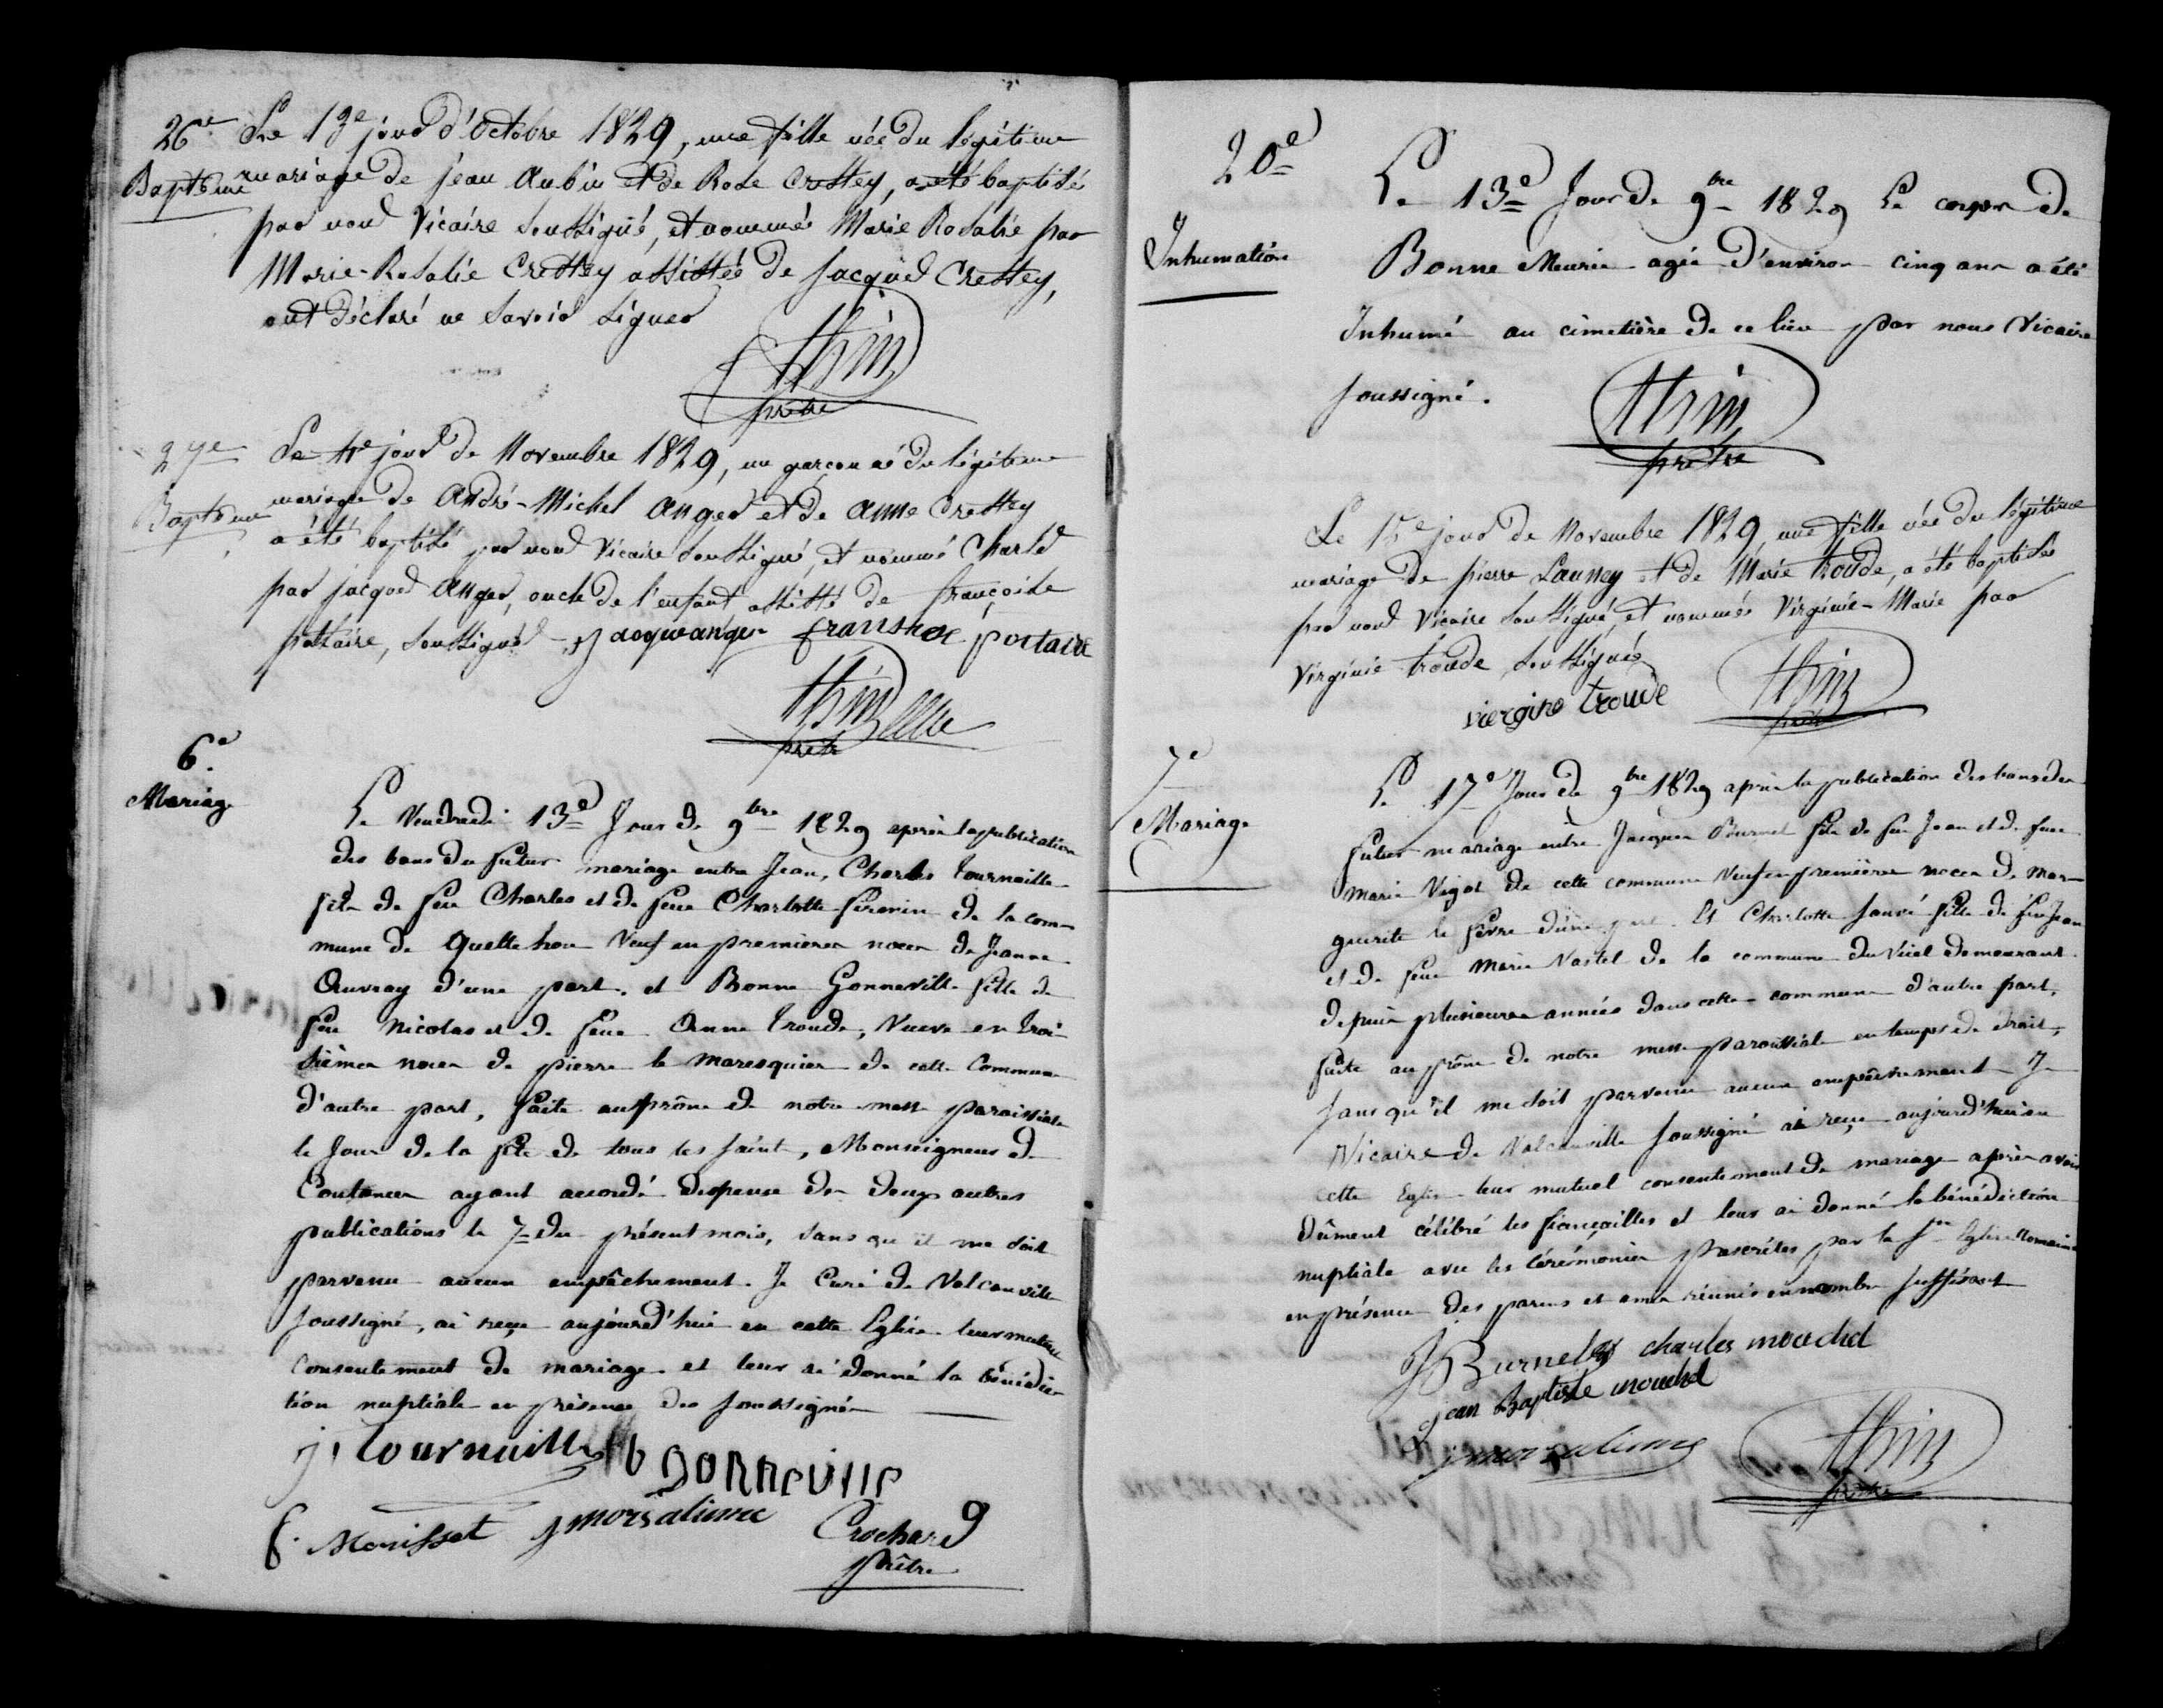 26e
Baptême
Le 13e jour d'Octobre 1829, une fille née du légitime
mariage de jean Aubin et de Rose Crestey, a été baptisée
par nous Vicaire soussigné, et nommée Marie Rosalie par
Marie-Rosalie Crestey assistée de Jacques Crestey,
ont déclaré ne savoir signer
thin
prêtre
27e
Baptême
Le jour de Novembre 1829, un garçon né du légitime
mariage de André-Michel Anger et de Anne Crestey
a été baptisé par nous Vicaire soussigné, et nommé Charles
par jacques Anger, oncle de l'enfant assisté de françoise
postaire, soussignés - Jacque anger franshoe postaire
thin
prêtre
6e.
Mariage
Le Vendredi 13e Jour de 9bre 1829 après la publication
des bans du futur mariage entre Jean, Charles Tournaille
fils de feu Charles et de feue Charlotte firmin de la com-
mune de Quettehou Veuf en premières noces de Jeanne
Ouvray d'une part. et Bonne Gonneville fille de
feu Nicolas et de feue Anne Troude, Veuve en troi-
sièmes noces de pierre le maresquier de cette Commune
d'autre part, faite au prône de notre messe paroissiale
le Jour de la fête de tous les saints, Monseigneur de
Coutances ayant accordé dispense des deux autres
publications le 7 du présent mois, sans qu'il me soit
parvenu aucun empêchement. Je Curé de Valcanville
soussigné, ai reçu aujourd'hui en cette Eglise leur mutuel
consentement de mariage et leur ai donné la bénédic-
tion nuptiale en présence des soussignés
j. tournaille b gonneville
f. Monisset j morsalinne Crochard
prêtre
20e
Inhumation
Le 13e Jour de 9bre 1829 Le corps de
Bonne Meurie agée d'environ cinq ans a été
Inhumé au cimetière de ce lieu par nous Vicaire
soussigné.
thin
prêtre
Le 15e jour de Novembre 1829 une fille née du légitime
mariage de pierre Launey et de Marie troude, a été baptisée
par nous Vicaire soussigné, et nommée Virginie-Marie par
Virginie troude soussignée
viergine troude thin
prêtre
7e
Mariage
Le 17e Jour de 9bre 1829 après la publication des bans du
futur mariage entre Jacques Burnel fils de feu Jean et de feue
marie Vigot de cette commune Veuf en premières noces de Mar-
guerite le fèvre d'une part. Et Charlotte sauvé fille de feu Jean
et de feue Marie Vastel de la commune du Vicel demeurant
depuis plusieurs années dans cette commune d'autre part,
faite au prône de notre messe paroissiale en temps de droit,
sans qu'il me soit parvenu aucun empêchement Je
Vicaire de Valcanville soussigné ai reçu aujourd'hui en
cette Eglise leur mutuel consentement de mariage après avoir
dûment célébré les fiançailles et leur ai donné la bénédiction
nuptiale avec les cérémonies prescrites par la Ste Eglise Romaine
en présence des parens et amis réunis en nombre suffisant
J Burnel charles mouchel
jean Baptiste mouchel
j morsalinne thin
prêtre